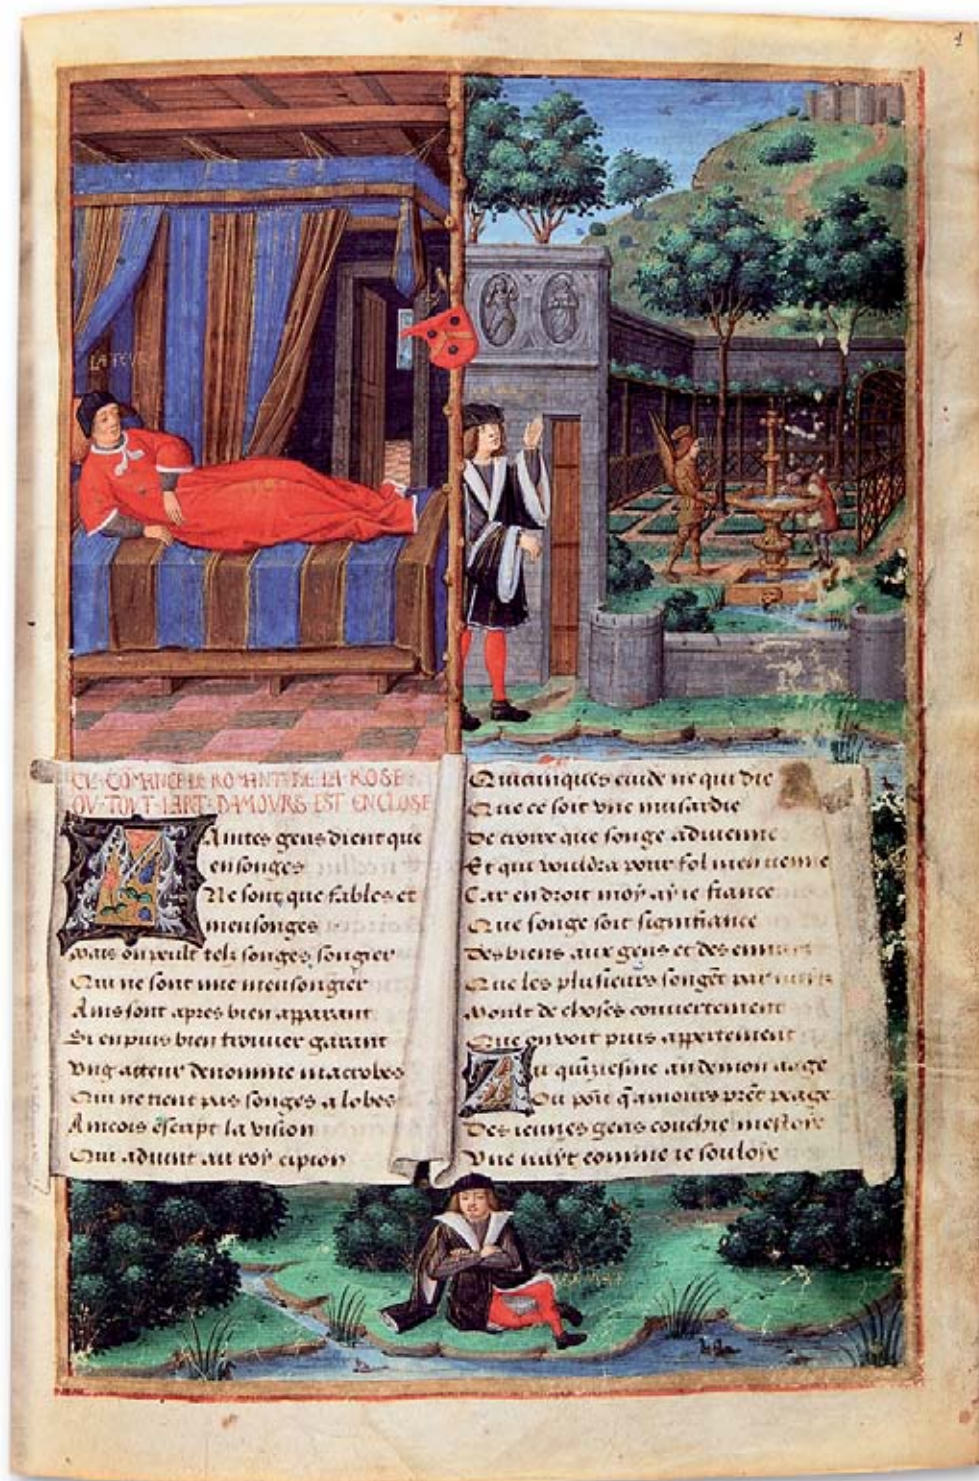 1
LA
CI COMANCE LE ROMANT DE LA ROSE
OV TOVT LART DAMOVRS EST ENCLOSE
Maintes gens dient que
en songes
Ne sont que fables et
mensonges
Mais on peult telz songes songier
Qui ne sont mie mensongier
Ains sont apres bien apparant
Si en puis bien trouver garant
Ung acteur denomme macrobes
Qui ne tient pas songes a lobes
Aincois escript la vision
Qui advint au roy cipion
Quicunques cuide ne qui die
Que ce soit une musardie
De croire que songe advienne
Et qui vouldra pour fol men tienne
Car endroit moy ay ie fiance
Que songe soit signifiance
Des biens aux gens et des
Que les plusieurs songēt par
Moult de choses couvertement
Que on voit puis appertement
Au quiziesme an de mon aage
Ou poīt q̄ amours prēt peage
Des ieunes gens couchie mestoye
Une nuyt comme ie souloye